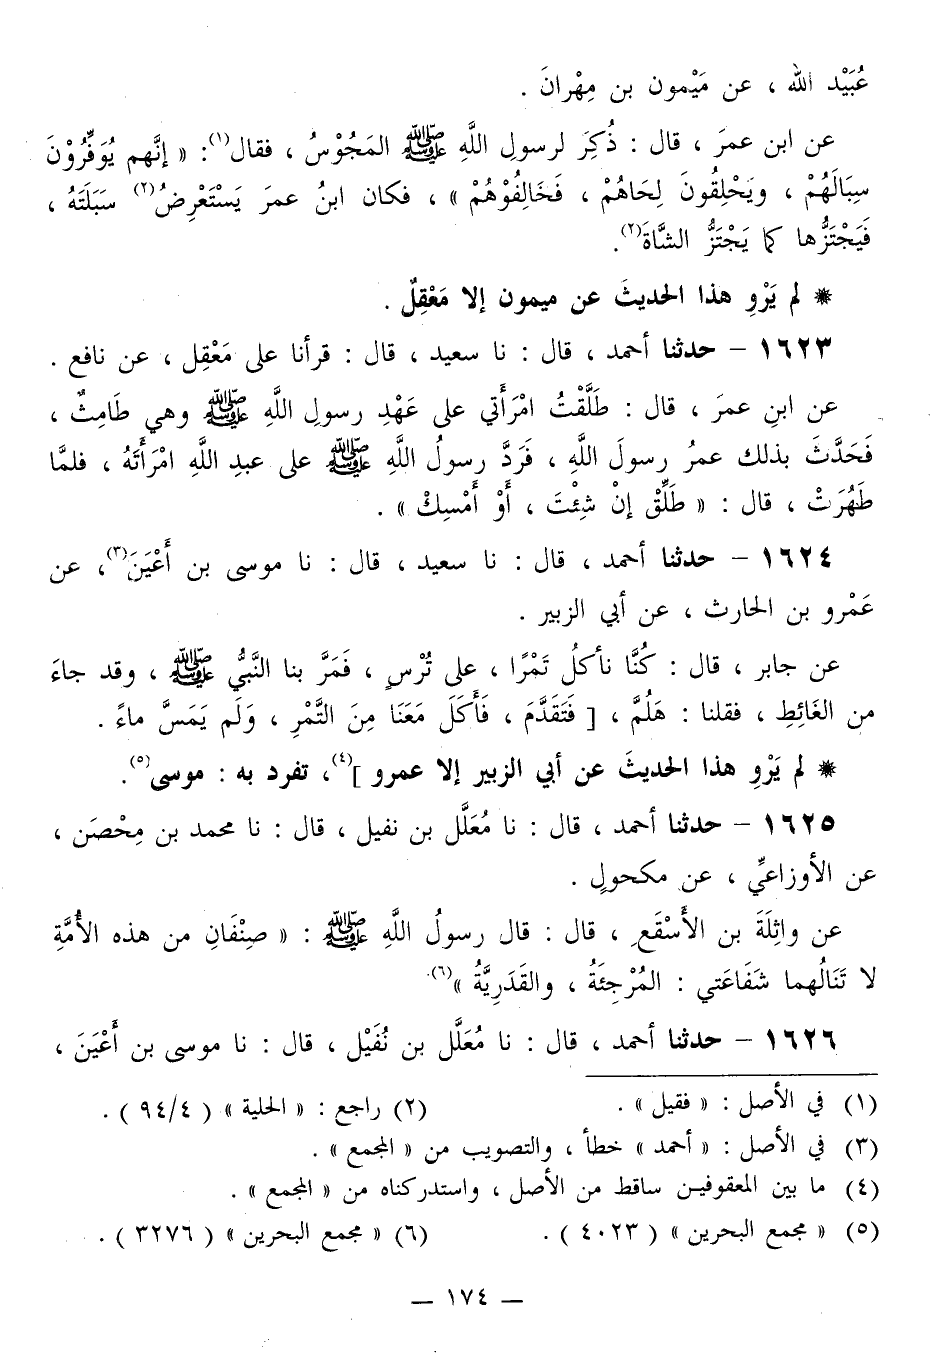 عُبَيْد الله ، عن مَيْمون بن مِهْرانَ .
عن ابن عمرَ ، قال : ذُكِرَ لرسولِ اللَّهِ ﷺ المَجُوْسُ ، فقال(١): « إنَّهم يُوَفِّرُوْنَ
سِبَالَهُمْ ، ويَحْلِقُونَ لِحَاهُمْ ، فَخَالِفُوْهُمْ » ، فكان ابنُ عمرَ يَسْتَعْرِضُ(٢) سَبَلَتَهُ ،
فَيَجْتَزُّها كما يَجْتَزُّ الشَّاةَ(٢).
* لم يَرْوِ هذا الحديثَ عن ميمون إلا مَعْقِلٌ .
١٦٢٣ - حدثنا أحمد ، قال : نا سعيد ، قال : قرأنا على مَعْقِل ، عن نافع .
عن ابنِ عمرَ ، قال : طَلَّقْتُ امْرَأَتي على عَهْدِ رسولِ اللَّهِ ﷺ وهي طَامِثٌ ،
فَحَدَّثَ بذلك عمرُ رسولَ اللَّهِ ، فَرَدَّ رسولُ اللَّهِ ﷺ على عبدِ اللَّهِ امْرَأَتَهُ ، فلمَّا
طَهُرَتْ ، قال : « طَلِّقْ إنْ شِئْتَ ، أَوْ أَمْسِكْ » .
١٦٢٤ - حدثنا أحمد ، قال : نا سعيد ، قال : نا موسى بن أَعْيَنَ(٣)، عن
عَمْرو بن الحارث ، عن أبي الزبير .
عن جابر ، قال : كُنَّا نأكلُ تَمْرًا ، على تُرْسٍ ، فَمَرَّ بنا النَّبيُّ ﷺ ، وقد جاءَ
من الغَائِطِ ، فقلنا : هَلُمَّ ، [ فَتَقَدَّمَ ، فَأَكَلَ مَعَنَا مِنَ التَّمْرِ ، وَلَم يَمَسَّ ماءً .
* لم يَرْوِ هذا الحديثَ عن أبي الزبير إلا عمرو ](٤)، تفرد به : موسى(٥).
١٦٢٥ - حدثنا أحمد ، قال : نا مُعَلَّل بن نفيل ، قال : نا محمد بن مِحْصَن ،
عن الأوزاعيِّ ، عن مكحولٍ .
عن واثِلَةَ بن الأَسْقَعِ ، قال : قال رسولُ اللَّهِ ﷺ : « صِنْفَانِ من هذه الأُمَّةِ
لا تَنَالُهما شَفَاعَتي : المُرْجِئَةُ ، والقَدَرِيَّةُ »(٦).
١٦٢٦ - حدثنا أحمد ، قال : نا مُعَلَّل بن نُفَيْل ، قال : نا موسى بن أَعْيَنَ ،
(١) في الأصل : « فقيل » .      (٢) راجع : « الحلية » ( ٩٤/٤ ) .
(٣) في الأصل : « أحمد » خطأ ، والتصويب من « المجمع » .
(٤) ما بين المعقوفين ساقط من الأصل ، واستدركناه من « المجمع » .
(٥) « مجمع البحرين » ( ٤٠٢٣ ) .      (٦) « مجمع البحرين » ( ٣٢٧٦ ) .
— ١٧٤ —